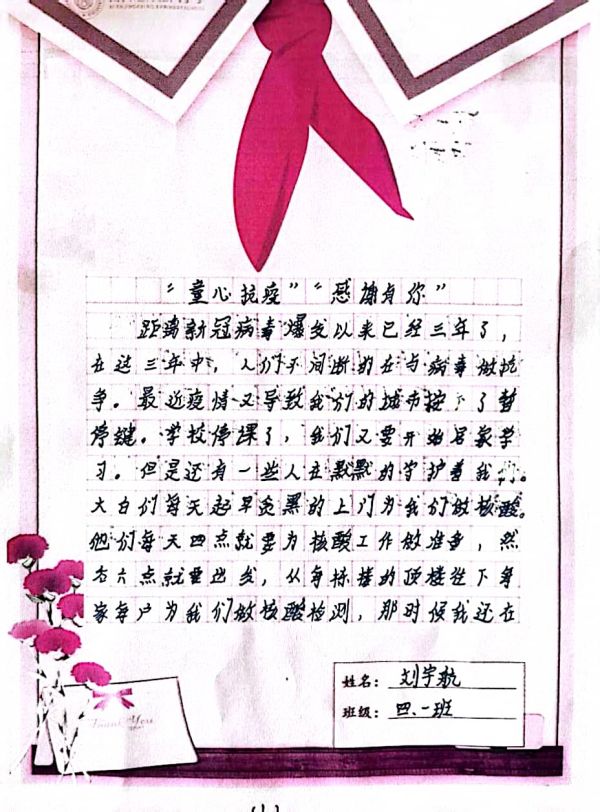 “童心抗疫”“感谢有你”
距离新冠病毒爆发以来已经三年了，
在这三年中，人们不间断的在与病毒做抗
争。最近疫情又导致我们的城市按下了暂
停键。学校停课了，我们又要开始居家学
习。但是还有一些人在默默的守护着我们。
大白们每天起早贪黑的上门为我们做核酸。
他们每天四点就要为核酸工作做准备，然
后六点就要出发，从每栋楼的顶楼往下每
家每户为我们做核酸检测，那时候我还在
姓名：刘宇航
班级：四、一班
Thank You